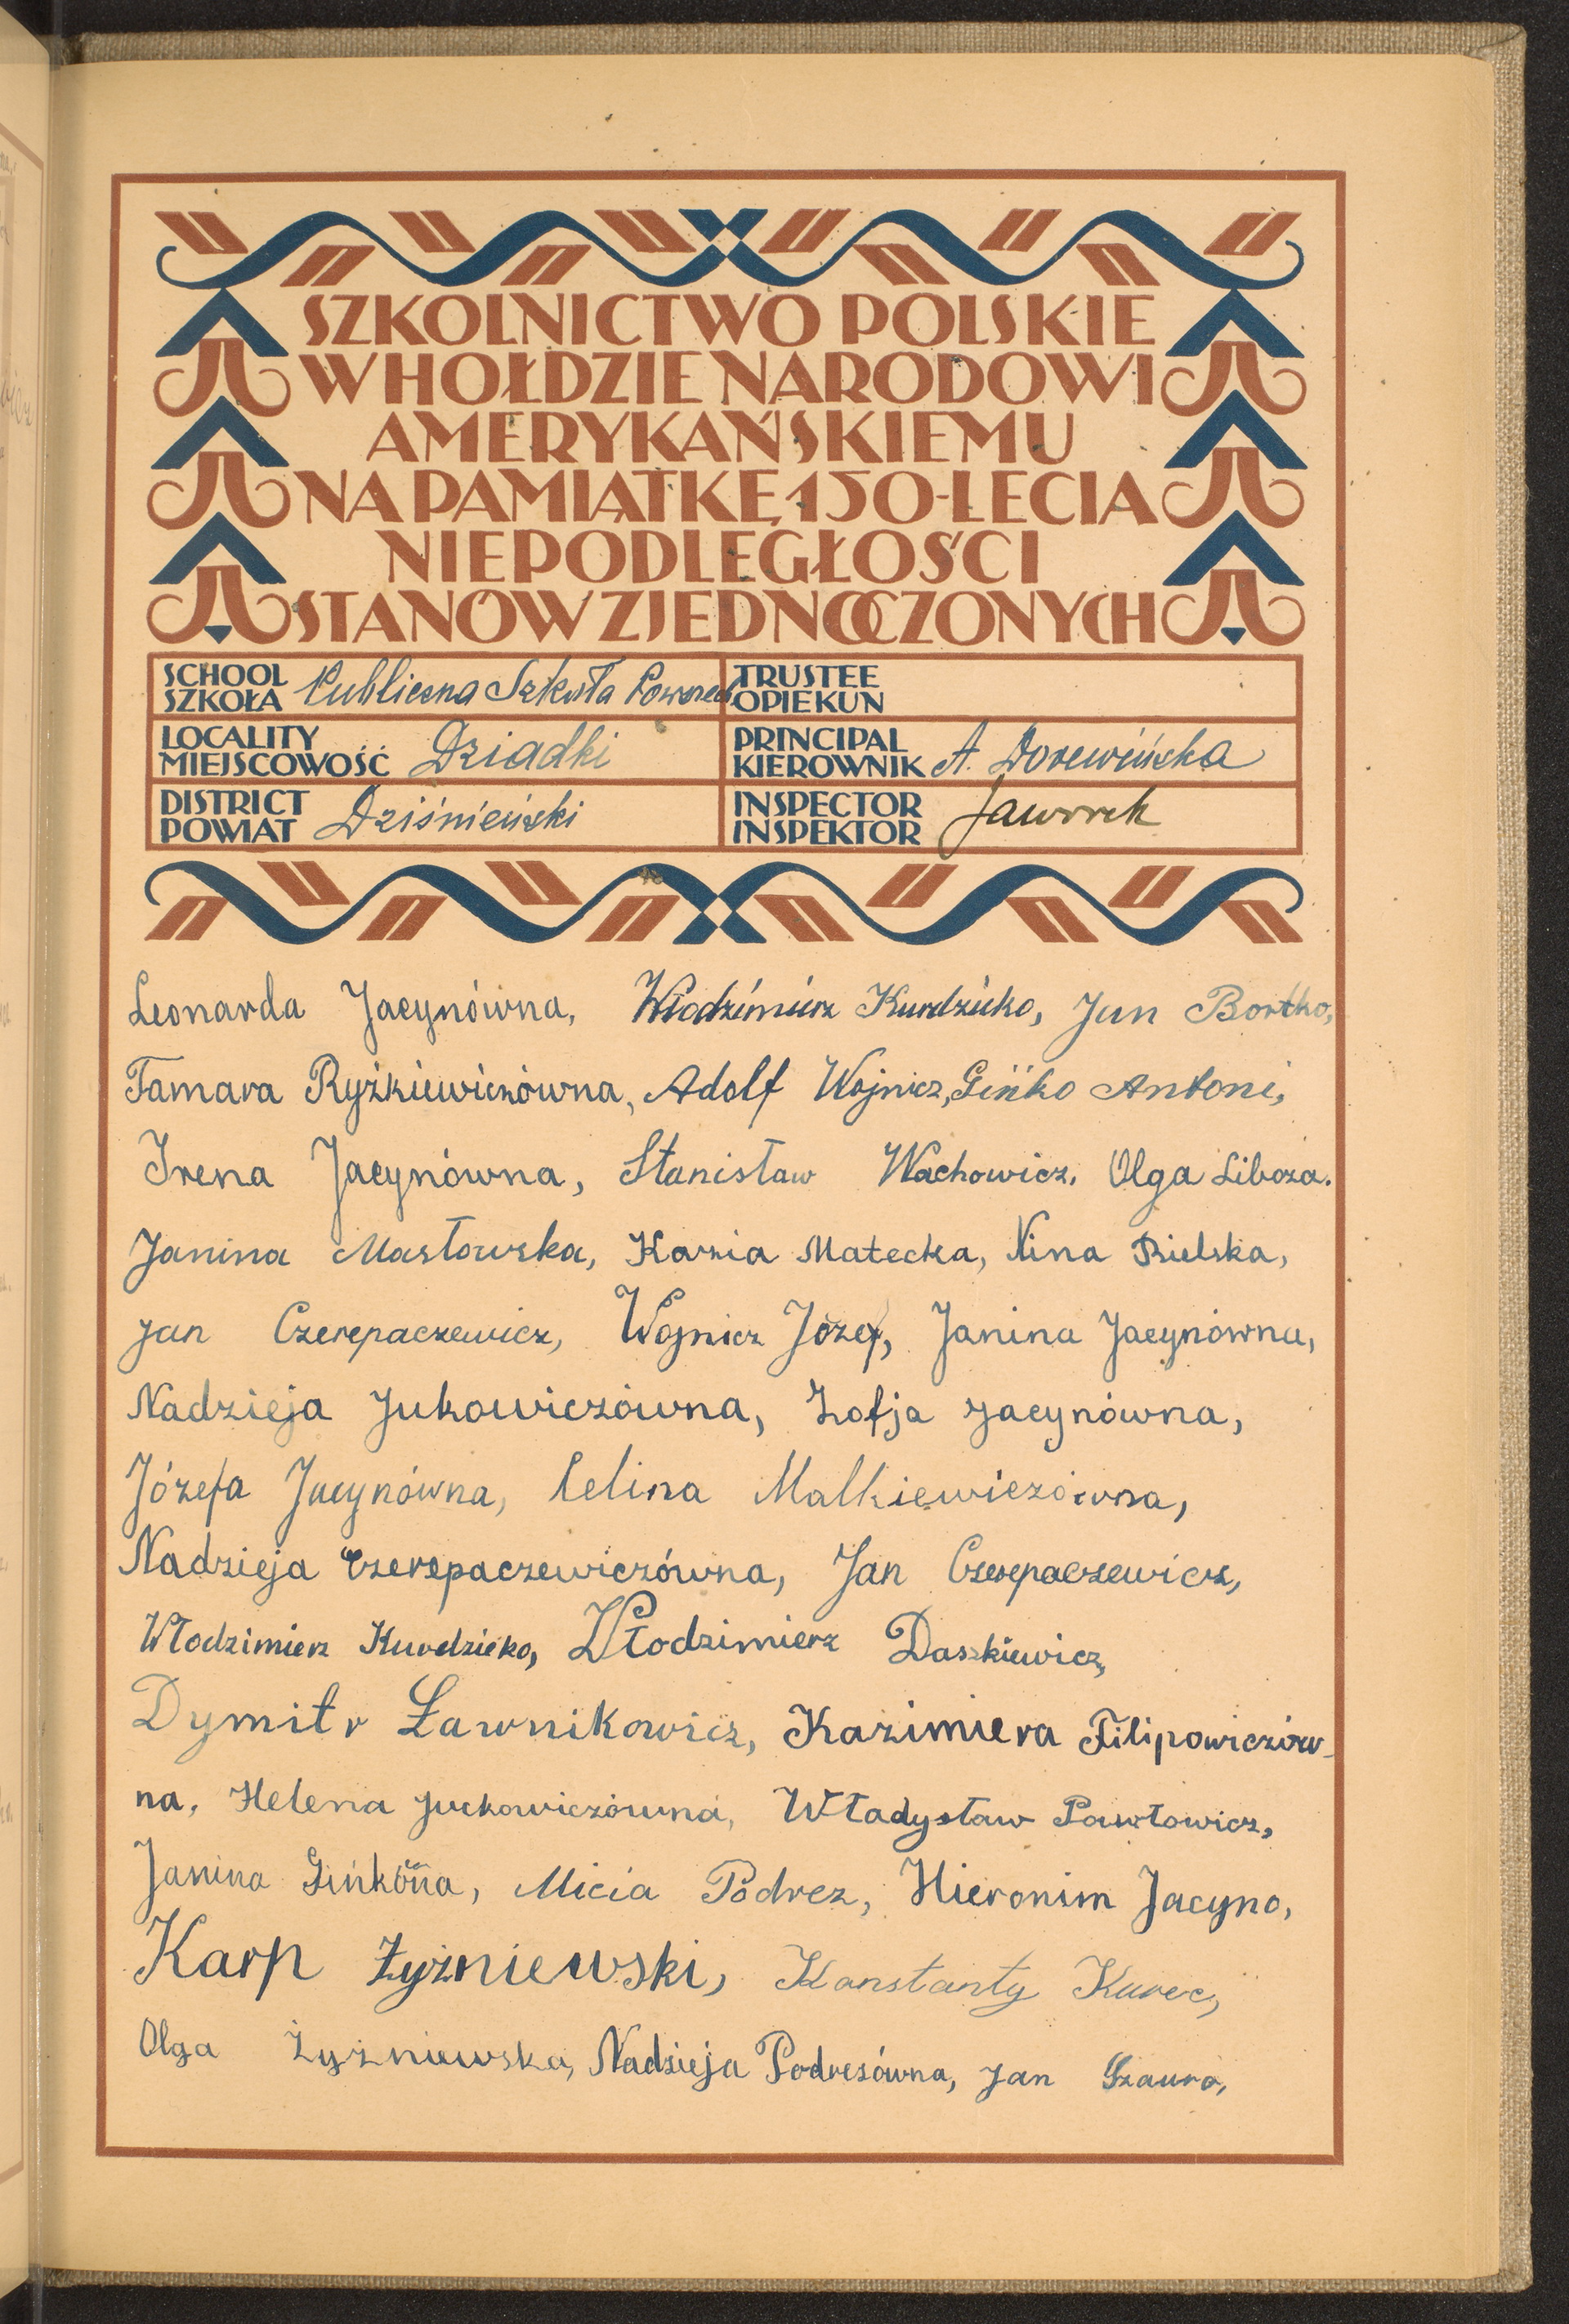 SZKOLNICTWO POLSKIE
W HOŁDZIE NARODOWI
AMERYKAŃSKIEMU
NA PAMIĄTKĘ 150-LECIA
NIEPODLEGŁOŚCI
STANÓW ZJEDNOCZONYCH
SCHOOL
SZKOŁA Publiczna Szkoła Powszech.
TRUSTEE
OPIEKUN
LOCALITY
MIEJSCOWOŚĆ Dziadki
PRINCIPAL
KIEROWNIK A. Dorewińska
DISTRICT
POWIAT Dziśnieński
INSPECTOR
INSPEKTOR Jaworek
Leonarda Jacynówna, Włodzimierz Kurdzieko, Jan Bortko,
Tamara Ryżkiewiczówna, Adolf Wojnicz, Gińko Antoni,
Irena Jacynówna, Stanisław Wachowicz. Olga Liboza.
Janina Masłowska, Kazia Matecka, Nina Bielska,
Jan Czerepaczewicz, Wojnicz Józef, Janina Jacynówna,
Nadzieja Jukowiczówna, Zofja Jacynówna,
Józefa Jacynówna, Celina Malkiewiczówna,
Nadzieja Czerepaczewiczówna, Jan Czerepaczewicz,
Włodzimierz Kurdzieko, Włodzimierz Daszkiewicz,
Dymitr Ławnikowicz, Kazimiera Filipowiczów-
na, Helena Juckowiczówna, Władysław Pawłowicz,
Janina Gińkówna, Micia Podrez, Hieronim Jacyno,
Karp Żyżniewski, Konstanty Kurec,
Olga Żyżniewska, Nadzieja Podrezówna, Jan Szauro,